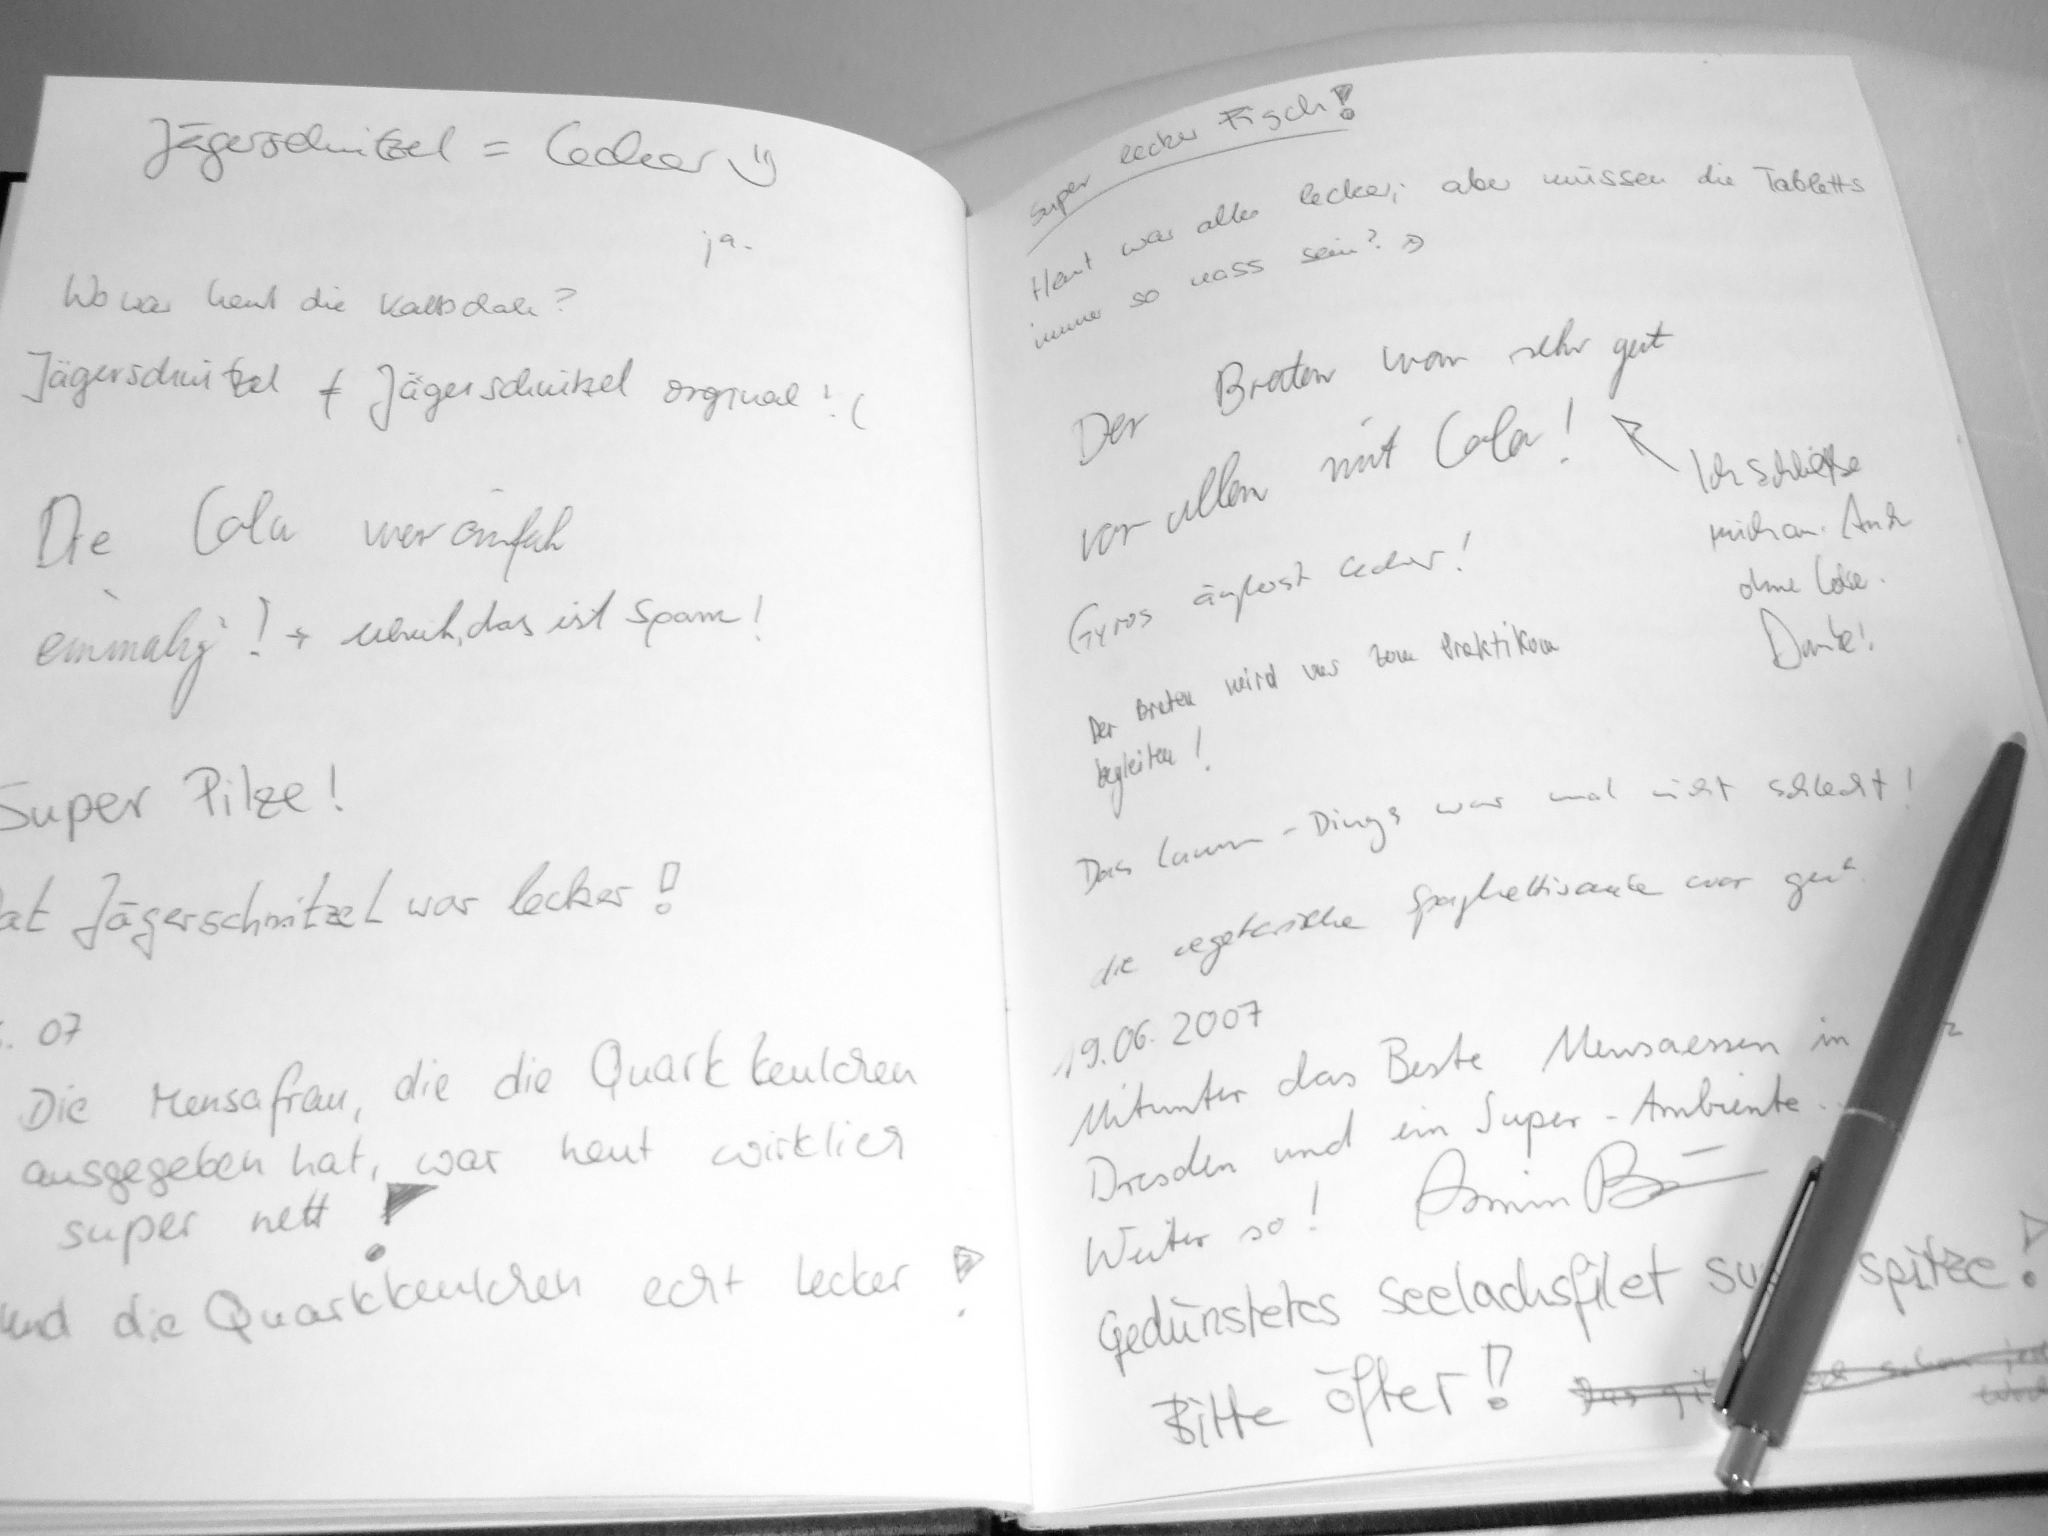 Jägerschnitzel = lecker
ja.
Wo war heut die Kaltschale?
Jägerschnitzel ≠ Jägerschnitzel orginal :(
Die Cola war einfah
einmalig! →, das ist Spam!
Super Pilze!
at Jägerschnitzel war lecker!
. 07
Die Mensafrau, die die Quarkkeulchen
ausgegeben hat, war heut wirklich
super nett!
und die Quarkkeulchen echt lecker!
Super lecker Fisch!
Heut war alles lecker; aber müssen die Tabletts
immer so nass sein? :)
Der Braten war sehr gut
vor allem mit Cola!
Ich schließe
mich an. Auch
ohne Cola.
Danke!
Gyros äußerst lecker!
Der Braten wird uns zum Praktikum
begleiten!
Das Lamm-Dings war mal nicht schlecht!
die vegetarische Spaghettisauce war gut.
19.06.2007
Mitunter das Beste Mensaessen in
Dresden und ein Super-Ambiente.
Weiter so! Armin
Gedünstetes Seelachsfilet su spitze!
Bitte öfter!